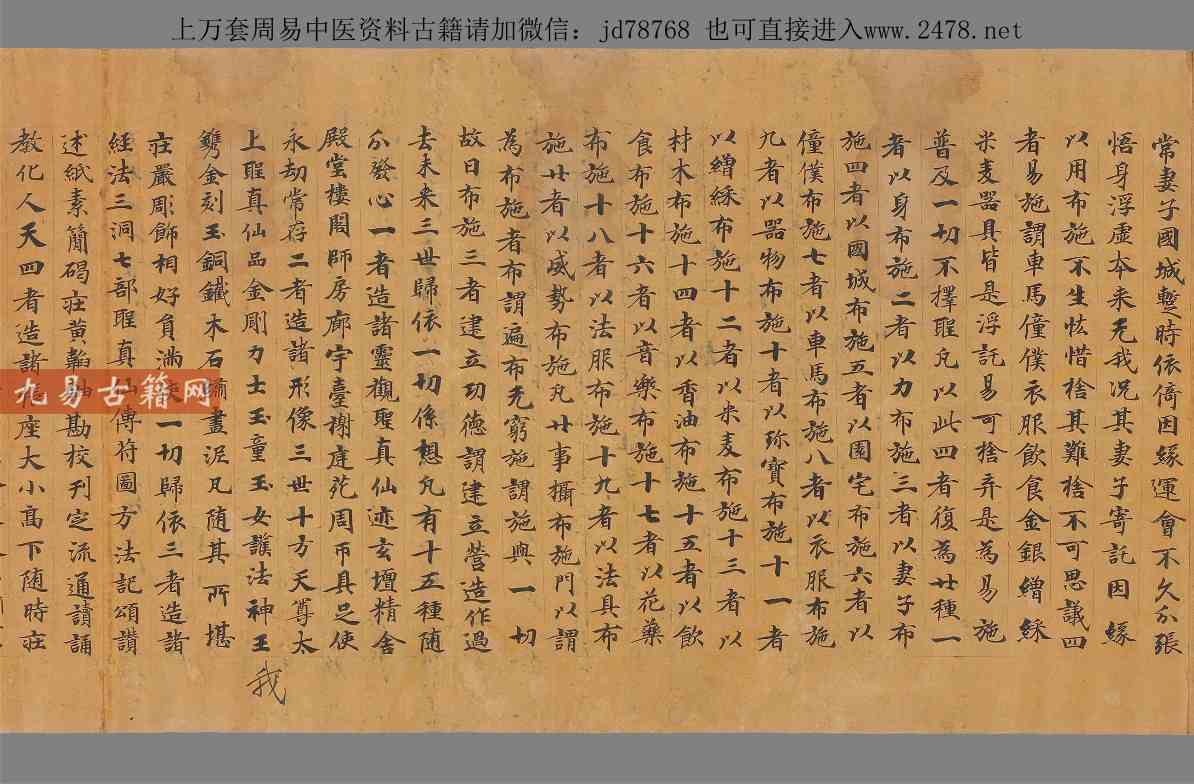 上万套周易中医资料古籍请加微信：jd78768 也可直接进入www.2478.net
常妻子國城蹔時依倚因緣運會不久分張
悟身浮虛夲来无我况其妻子寄託因緣
以用布施不生恡惜捨其難捨不可思議四
者易施謂車馬僮僕衣服飲食金銀繒綵
米麦器具皆是浮託易可捨弃是為易施
普及一切不擇聖凡以此四者復為廿種一
者以身布施二者以力布施三者以妻子布
施四者以國城布施五者以園宅布施六者以
僮僕布施七者以車馬布施八者以衣服布施
九者以器物布施十者以珎寶布施十一者
以繒綵布施十二者以米麦布施十三者以
材木布施十四者以香油布施十五者以飲
食布施十六者以音樂布施十七者以花藥
布施十八者以法服布施十九者以法具布
施廿者以威勢布施凡廿事攝布施門以謂
為布施者布謂遍布无窮施謂施與一切
故曰布施三者建立功德謂建立營造作過
去未来三世歸依一切係想凡有十五種随
分發心一者造諸靈觀聖真仙迹玄壇精舍
殿堂樓閣師房廊宇臺榭庭苑周帀具足使
永劫常存二者造諸形像三世十方天尊太
上聖真仙品金剛力士玉童玉女護法神王
鐫金刻玉銅鐵木石 畫泥凡随其所堪
莊嚴彫飾相好負滿 一切歸依三者造諸
經法三洞七部聖真 傳符圖方法記頌讚
述紙素簡碣莊黄 勘校刊定流通讀誦
教化人天四者造諸 座大小髙下随時莊
我
九易古籍网